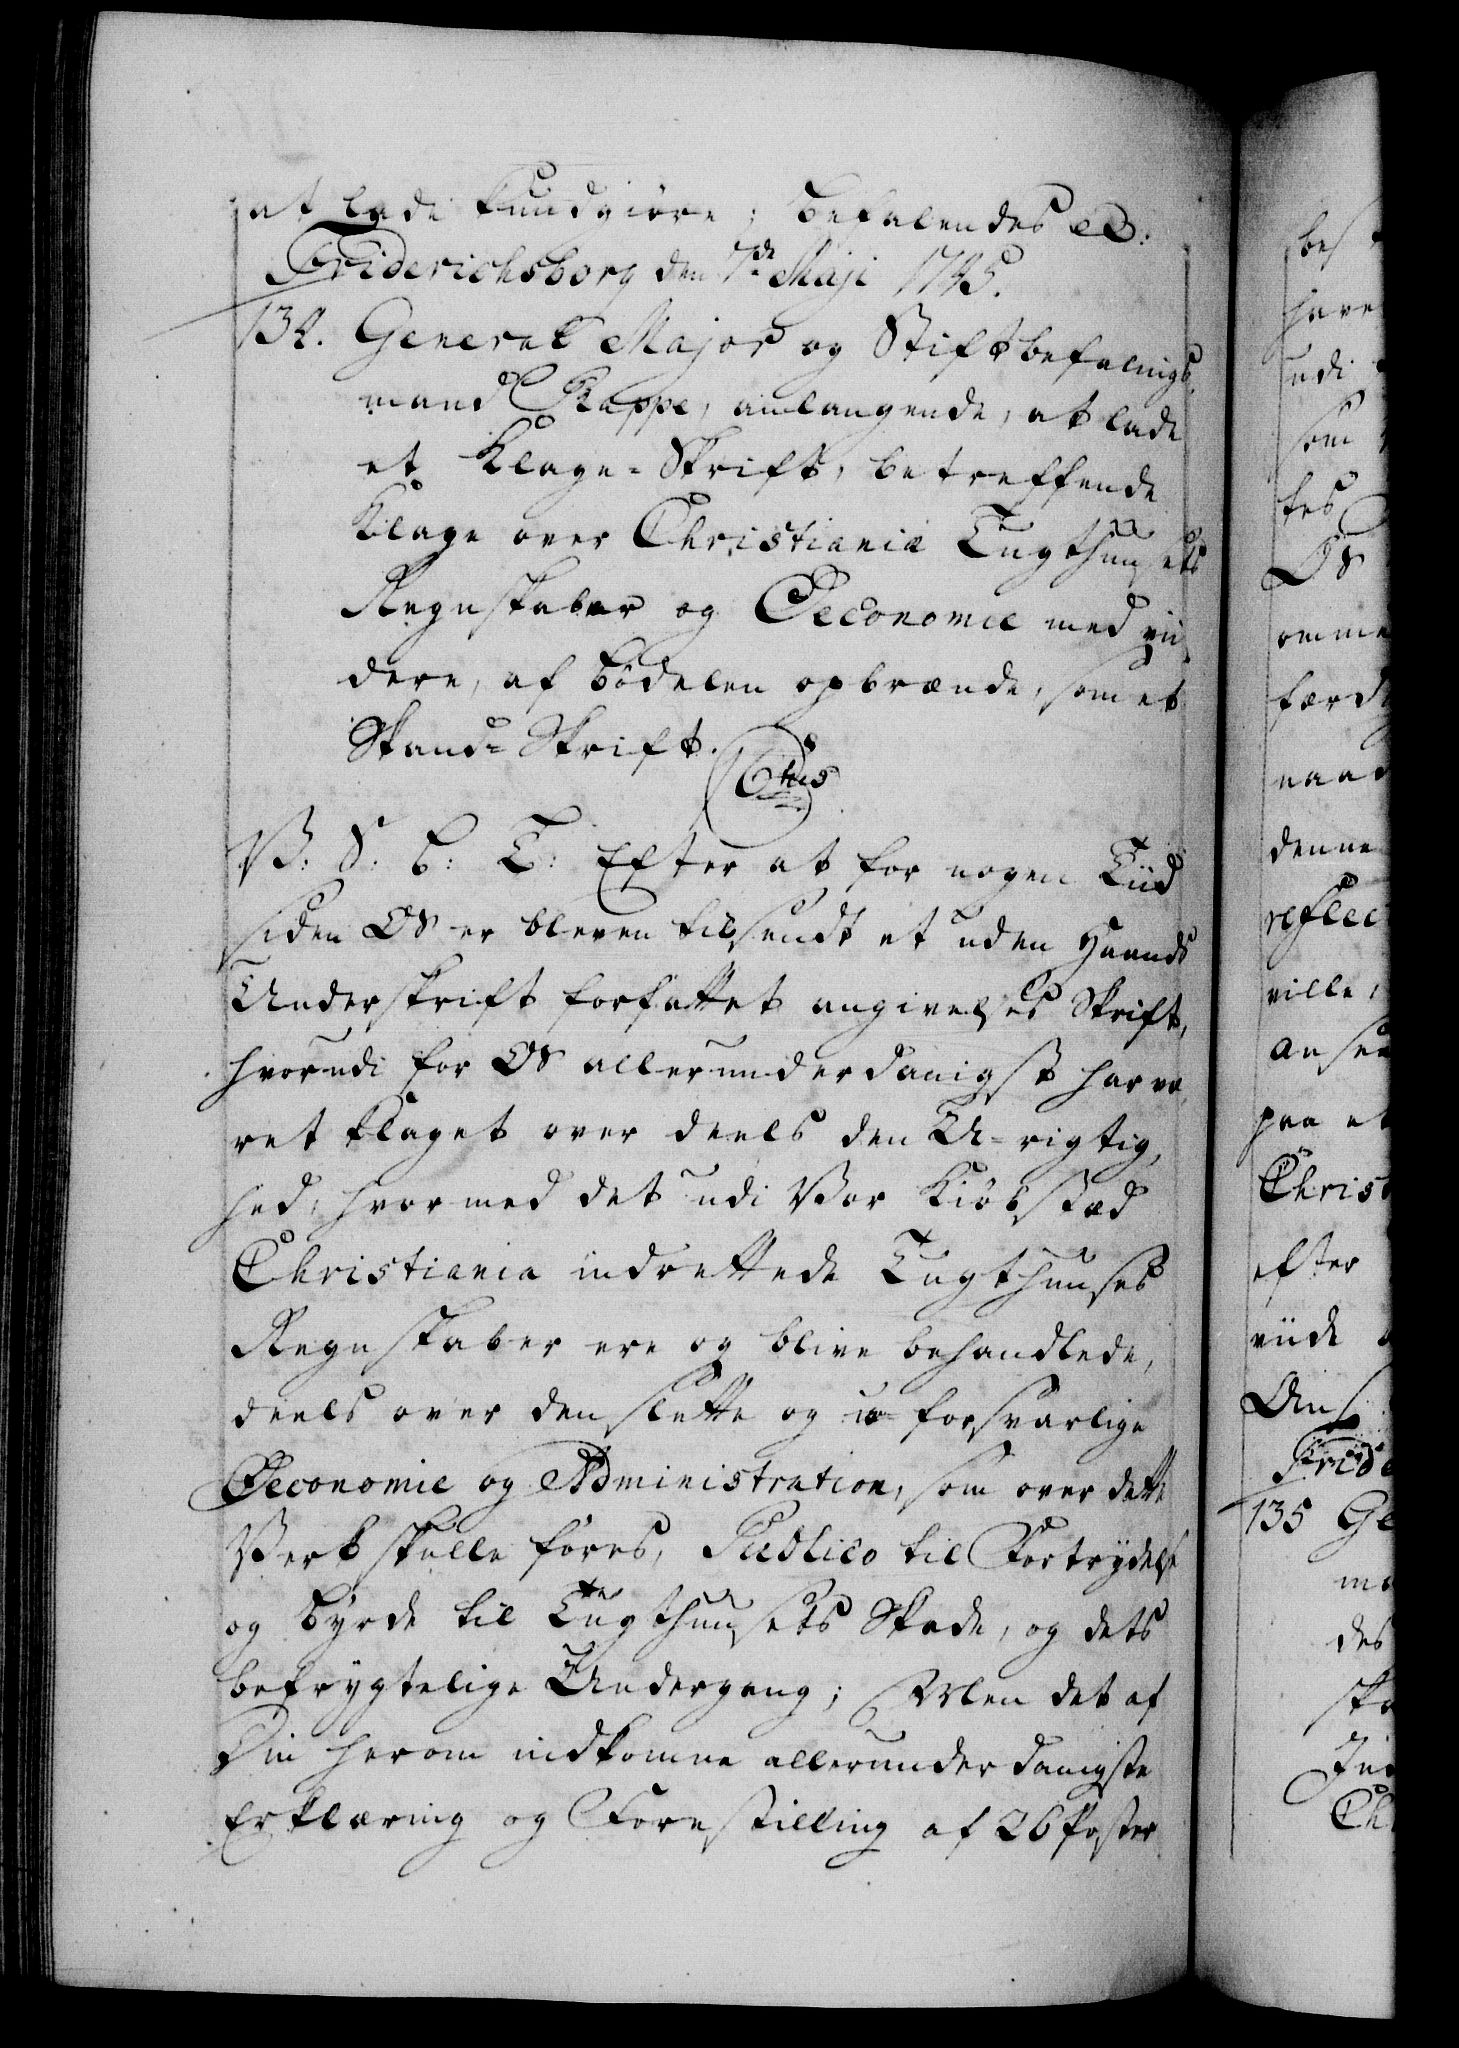 at lade kundgiøre; Befalendes etc:
Friderichsborg den 7de Maji 1745.
134. General Major og Stiftbefalings-
mand Rappe, anlangende, at lade
et Klage-Skrift, betreffende
Klage over Christiania Tugthuusets
Regnskaber og Oeconomie med vii-
dere, af Bødelen opbrænde, som et
Skand-Skrift.
V: S: G: T: Efter at for nogen Tiid
siden OS er bleven tilsendt et uden Haands
Underskrift forfattet angivelses Skrift,
hvorudi for OS allerunderdanigst har væ-
ret klaget over deels den U-rigtig-
hed, hvormed det udi Vor Kiøbstæd
Christiania indrettede Tugthuuses
Regnskaber ere og blive behandlede,
deels over den slette og u-forsvarlige
Oeconomie og Administration, som over dette
Verk skulle føres, Publico til Fortrydelse
og Byrde til Tugthuusets Skade, og dets
befrygtelige Undergang; Men det af
Din herom indkomne allerunderdanigste
Erklæring og Forestilling af 26 Poster
bes
have
udi
som
tes
OS
omme
færdig
naad
denne
reflec
ville,
ansee
paa et
Christ
efter
viide
Ans
Fride
135 Ge
ma
des
Ch